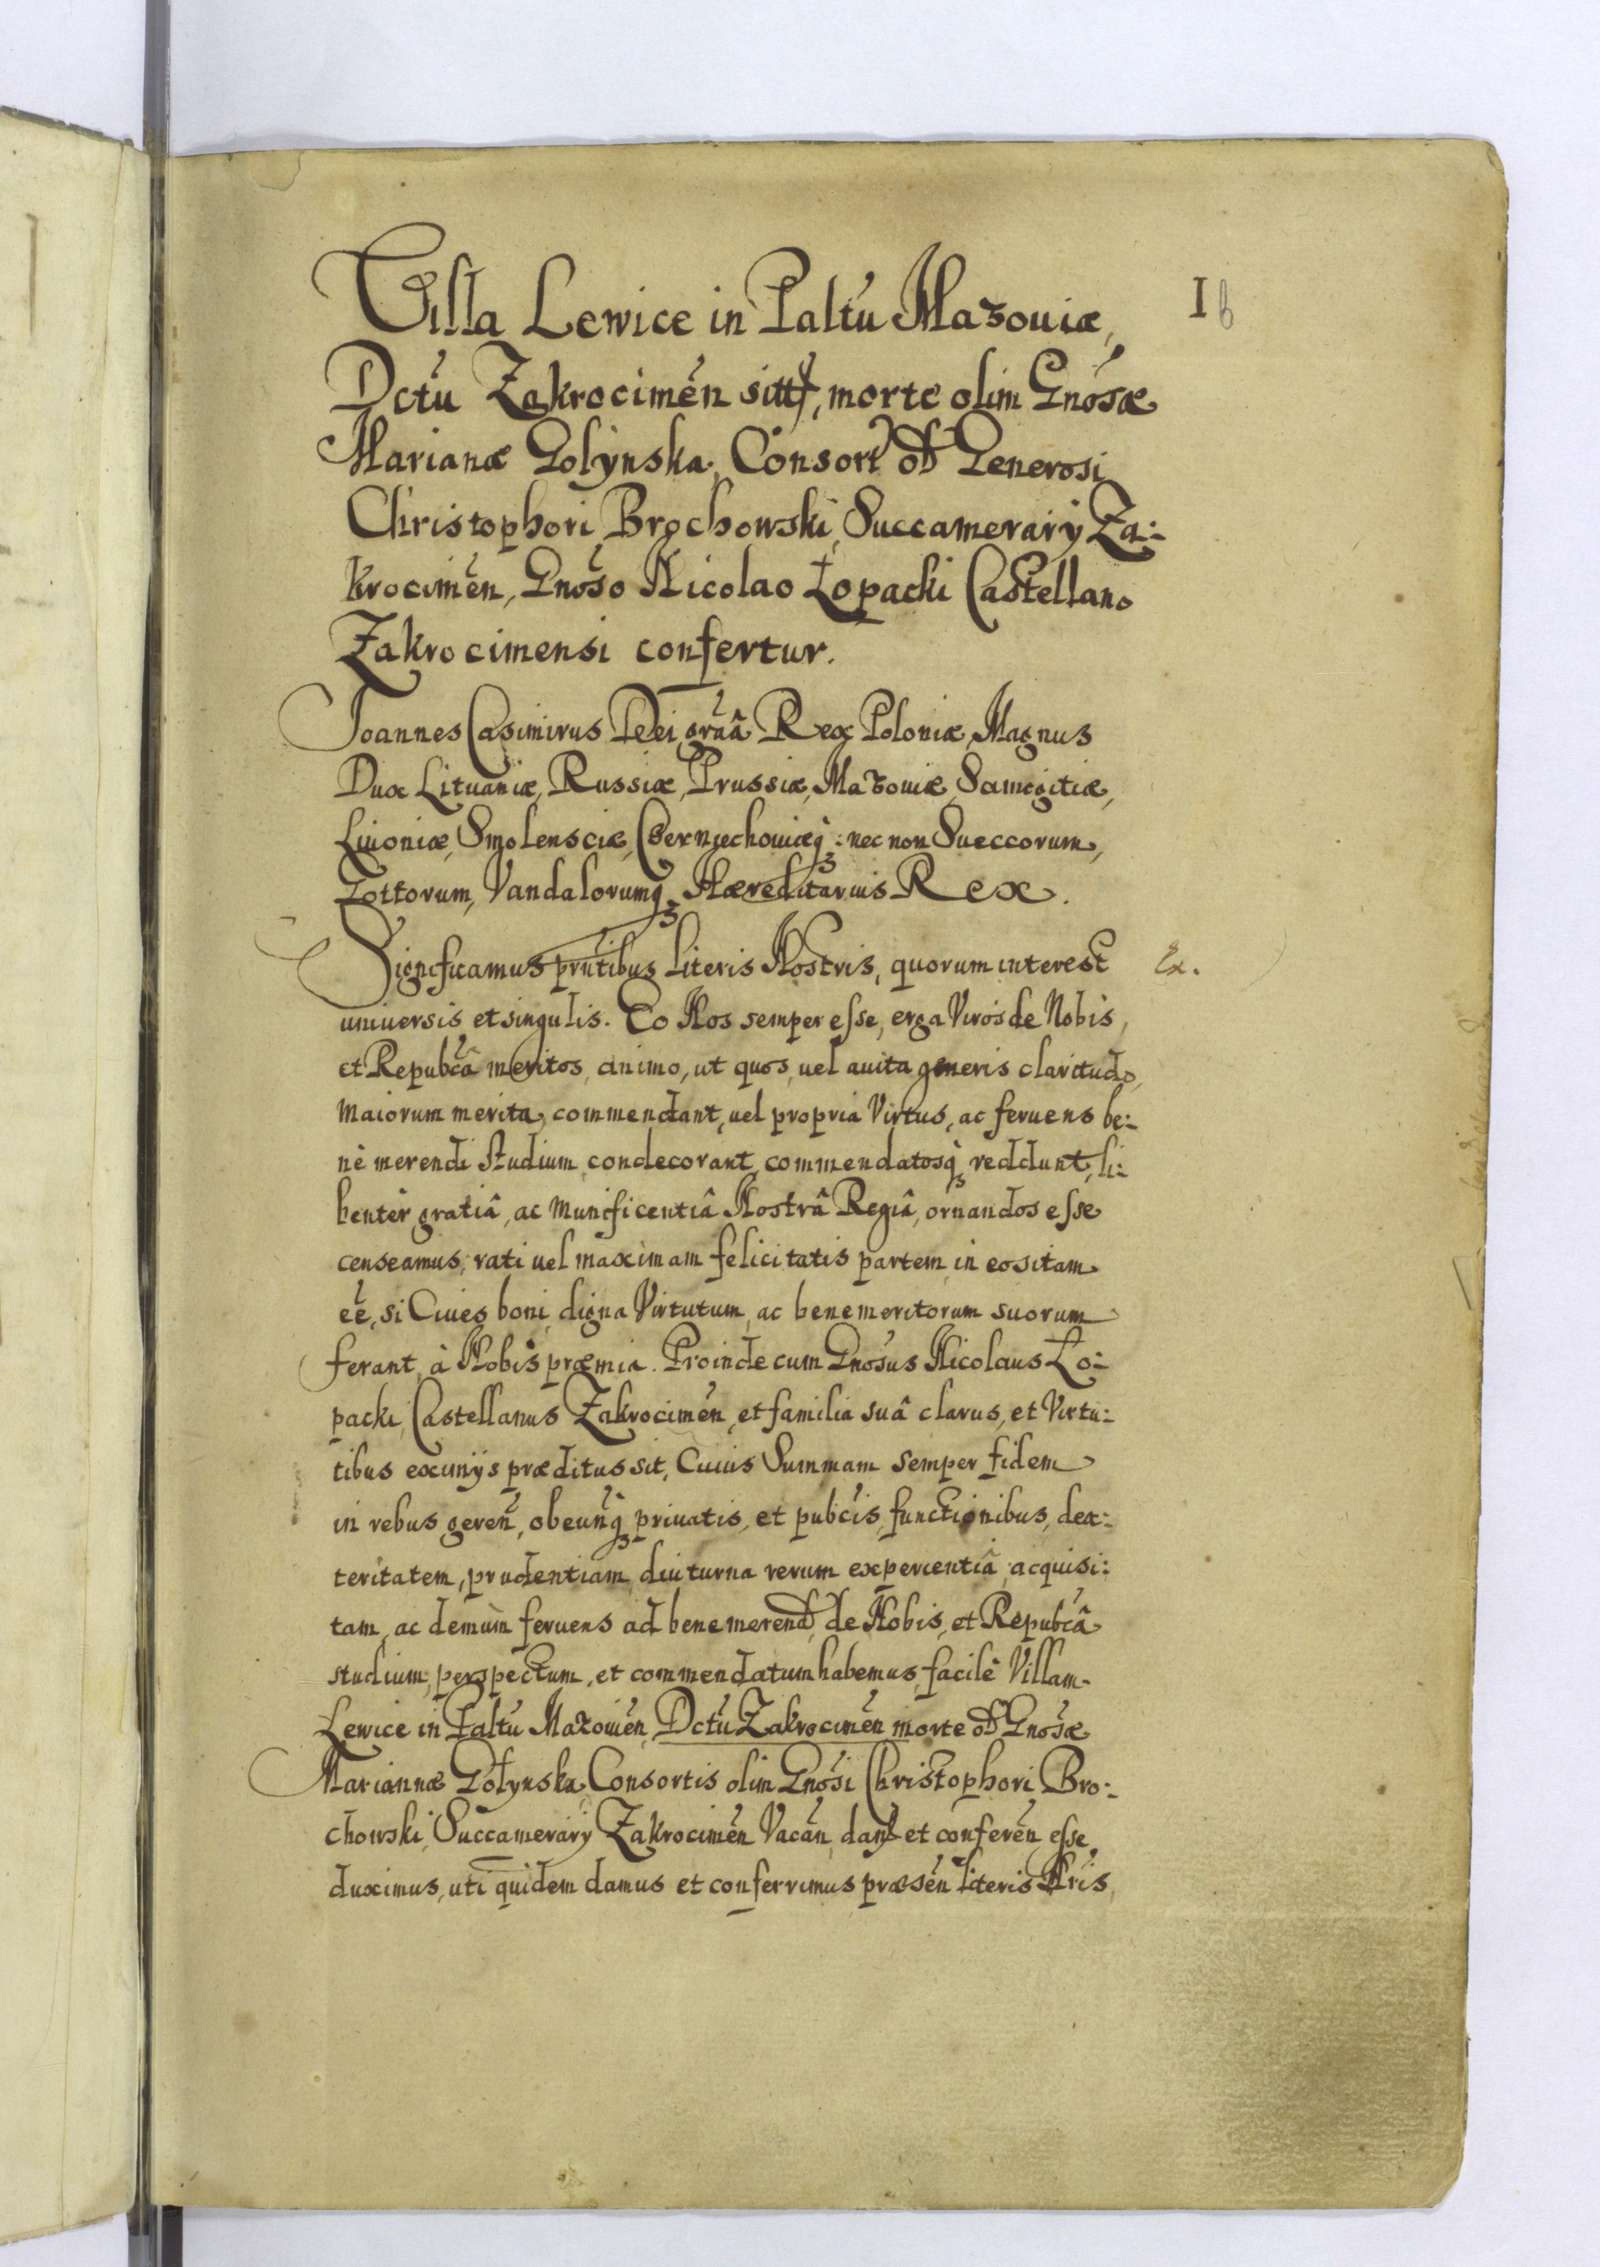 Villa Lewice in Paltu Mazouiæ,
Dctu Zakrocimen sitt, morte olim Gnosæ
Marianæ Golynska, Consort od Generosi
Christophori Brochowski, Succamerarij Za:
krocimen, Gnoso Nicolao Łopacki Castellano
Zakrocimensi confertur.
I b
Joannes Casimirus Dei grãa Rex Poloniæ, Magnus
Dux Lituaniæ, Russiæ, Prussiæ, Mazouiæ, Samogitiæ,
Liuoniæ, Smolensciæ, Czernyechouiæq: nec non Sueccorum,
Gottorum, Vandalorumq Hæreditarius Rex.
Significamus prntibus Literis Nostris, quorum interest
Ex.
uniuersis et singulis. Eo Nos semper esse, erga Viros de Nobis,
et Repubcâ meritos, animo, ut quos, uel auita generis claritudo,
maiorum merita, commendant, uel propria Virtus, ac feruens be:
nè merendi Studium condecorant, commendatosq reddunt, li:
benter gratiâ, ac munificentiâ Nostrâ Regiâ, ornandos esse
censeamus, rati uel maximam felicitatis partem in eo sitam
eê, si Ciues boni, digna Virtutum, ac benemeritorum suorum
ferant, à Nobis præmia. Proinde cum Gnosus Nicolaus Ło:
packi, Castellanus Zakrocimen, et familia suâ clarus, et Virtu:
tibus eximijs præditus sit, Cuius Summam semper fidem
in rebus geren, obeunq priuatis, et pubcis, functionibus, dex:
teritatem, prudentiam, diuturna rerum experientiâ, acquisi:
tam, ac demùm feruens ad benemerend, de Nobis, et Repubcâ
studium, perspectum, et commendatum habemus, facilè Villam
Lewice in Paltu Mazouien, Dctu Zakrocimen morte od Gnosæ
Mariannæ Gołynska, Consortis olim Gnosi Christophori Bro:
chowski, Succamerarij Zakrocimen Vacan, dan et conferen, esse
duximus, uti quidem damus et conferrimus præsen literis Nris